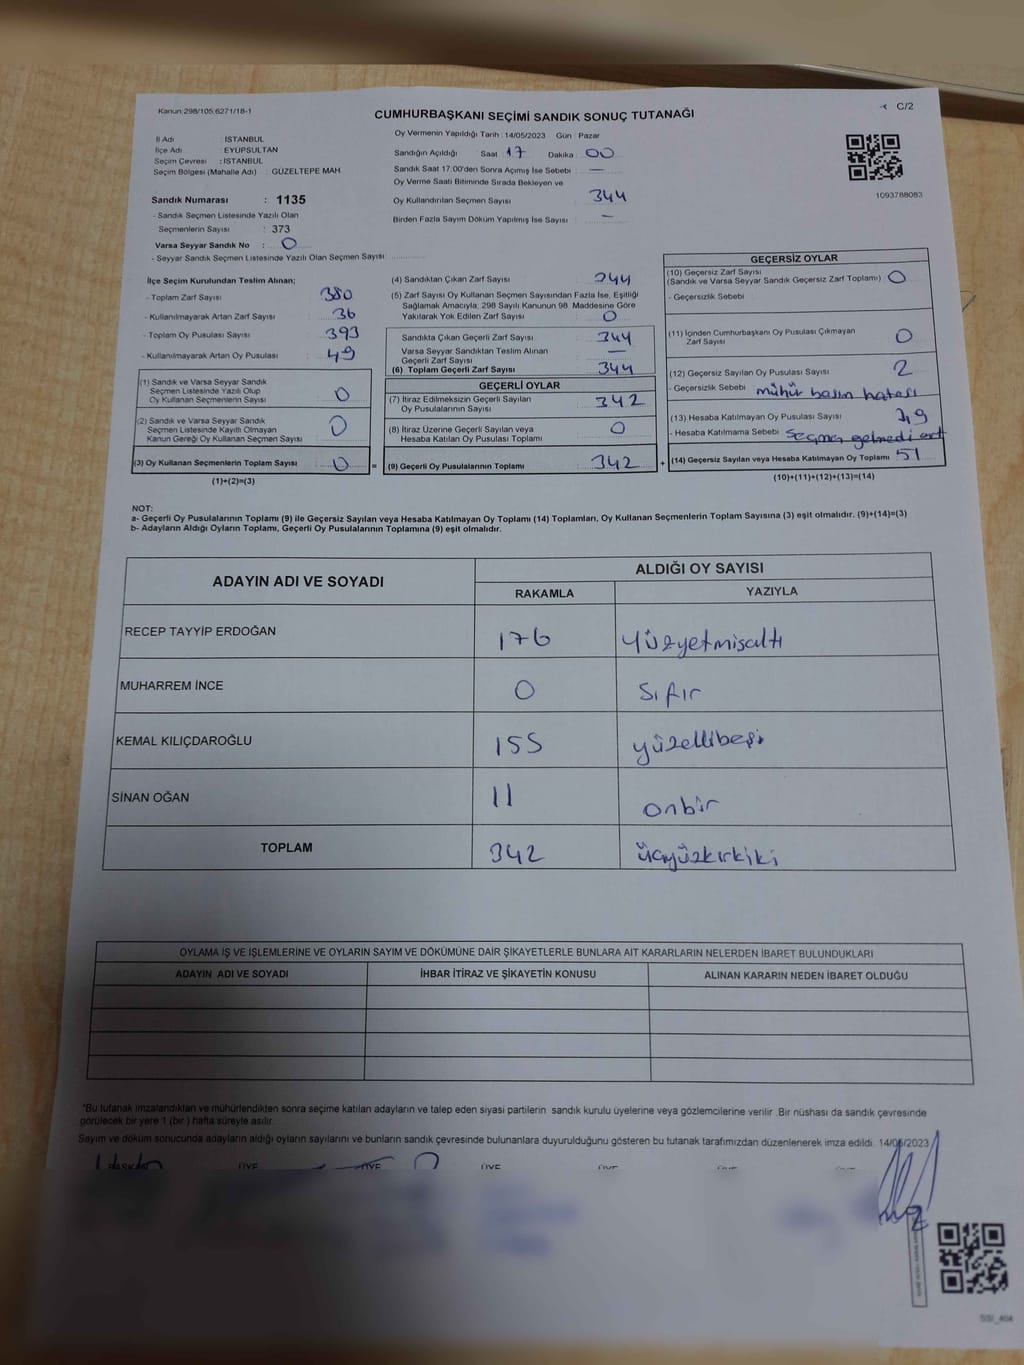 Kanun:298/105.6271/18-1
CUMHURBAŞKANI SEÇİMİ SANDIK SONUÇ TUTANAĞI
C/2
İl Adı : İSTANBUL
İlçe Adı : EYÜPSULTAN
Seçim Çevresi : İSTANBUL
Seçim Bölgesi (Mahalle Adı) : GÜZELTEPE MAH.
Sandık Numarası : 1135
- Sandık Seçmen Listesinde Yazılı Olan
Seçmenlerin Sayısı : 373
Varsa Seyyar Sandık No : 0
- Seyyar Sandık Seçmen Listesinde Yazılı Olan Seçmen Sayısı :
Oy Vermenin Yapıldığı Tarih : 14/05/2023 Gün : Pazar
Sandığın Açıldığı Saat 17 Dakika : 00
Sandık Saat 17:00'den Sonra Açımış İse Sebebi : —
Oy Verme Saati Bitiminde Sırada Bekleyen ve
Oy Kullandırılan Seçmen Sayısı : 344
Birden Fazla Sayım Döküm Yapılmış İse Sayısı : —
1093788083
İlçe Seçim Kurulundan Teslim Alınan;
- Toplam Zarf Sayısı : 380
- Kullanılmayarak Artan Zarf Sayısı : 36
- Toplam Oy Pusulası Sayısı : 393
- Kullanılmayarak Artan Oy Pusulası : 49
(1) Sandık ve Varsa Seyyar Sandık
Seçmen Listesinde Yazılı Olup
Oy Kullanan Seçmenlerin Sayısı : 0
(2) Sandık ve Varsa Seyyar Sandık
Seçmen Listesinde Kayıtlı Olmayan
Kanun Gereği Oy Kullanan Seçmen Sayısı : 0
(3) Oy Kullanan Seçmenlerin Toplam Sayısı : 0 =
(1)+(2)=(3)
(4) Sandıktan Çıkan Zarf Sayısı : 344
(5) Zarf Sayısı Oy Kullanan Seçmen Sayısından Fazla İse, Eşitliği
Sağlamak Amacıyla, 298 Sayılı Kanunun 98. Maddesine Göre
Yakılarak Yok Edilen Zarf Sayısı : 0
Sandıkta Çıkan Geçerli Zarf Sayısı : 344
Varsa Seyyar Sandıktan Teslim Alınan
Geçerli Zarf Sayısı : —
(6) Toplam Geçerli Zarf Sayısı : 344
GEÇERLİ OYLAR
(7) İtiraz Edilmeksizin Geçerli Sayılan
Oy Pusulalarının Sayısı : 342
(8) İtiraz Üzerine Geçerli Sayılan veya
Hesaba Katılan Oy Pusulası Toplamı : 0
(9) Geçerli Oy Pusulalarının Toplamı : 342 +
GEÇERSİZ OYLAR
(10) Geçersiz Zarf Sayısı
(Sandık ve Varsa Seyyar Sandık Geçersiz Zarf Toplamı) : 0
- Geçersizlik Sebebi :
(11) İçinden Cumhurbaşkanı Oy Pusulası Çıkmayan
Zarf Sayısı : 0
(12) Geçersiz Sayılan Oy Pusulası Sayısı : 2
- Geçersizlik Sebebi : mühür basım hatası
(13) Hesaba Katılmayan Oy Pusulası Sayısı : 49
- Hesaba Katılmama Sebebi : seçmen gelmedi art
(14) Geçersiz Sayılan veya Hesaba Katılmayan Oy Toplamı : 51
(10)+(11)+(12)+(13)=(14)
NOT:
a- Geçerli Oy Pusulalarının Toplamı (9) ile Geçersiz Sayılan veya Hesaba Katılmayan Oy Toplamı (14) Toplamları, Oy Kullanan Seçmenlerin Toplam Sayısına (3) eşit olmalıdır. (9)+(14)=(3)
b- Adayların Aldığı Oyların Toplamı, Geçerli Oy Pusulalarının Toplamına (9) eşit olmalıdır.
ADAYIN ADI VE SOYADI
ALDIĞI OY SAYISI
RAKAMLA YAZIYLA
RECEP TAYYİP ERDOĞAN 176 yüzyetmişaltı
MUHARREM İNCE 0 Sıfır
KEMAL KILIÇDAROĞLU 155 yüzellibeş
SİNAN OĞAN 11 onbir
TOPLAM 342 üçyüzkırkiki
OYLAMA İŞ VE İŞLEMLERİNE VE OYLARIN SAYIM VE DÖKÜMÜNE DAİR ŞİKAYETLERLE BUNLARA AİT KARARLARIN NELERDEN İBARET BULUNDUKLARI
ADAYIN ADI VE SOYADI İHBAR İTİRAZ VE ŞİKAYETİN KONUSU ALINAN KARARIN NEDEN İBARET OLDUĞU
*Bu tutanak imzalandıktan ve mühürlendikten sonra seçime katılan adayların ve talep eden siyasi partilerin sandık kurulu üyelerine veya gözlemcilerine verilir. Bir nüshası da sandık çevresinde
görülecek bir yere 1 (bir ) hafta süreyle asılır.
Sayım ve döküm sonucunda adayların aldığı oyların sayılarını ve bunların sandık çevresinde bulunanlara duyurulduğunu gösteren bu tutanak tarafımızdan düzenlenerek imza edildi. 14/05/2023
ÜYE ÜYE ÜYE